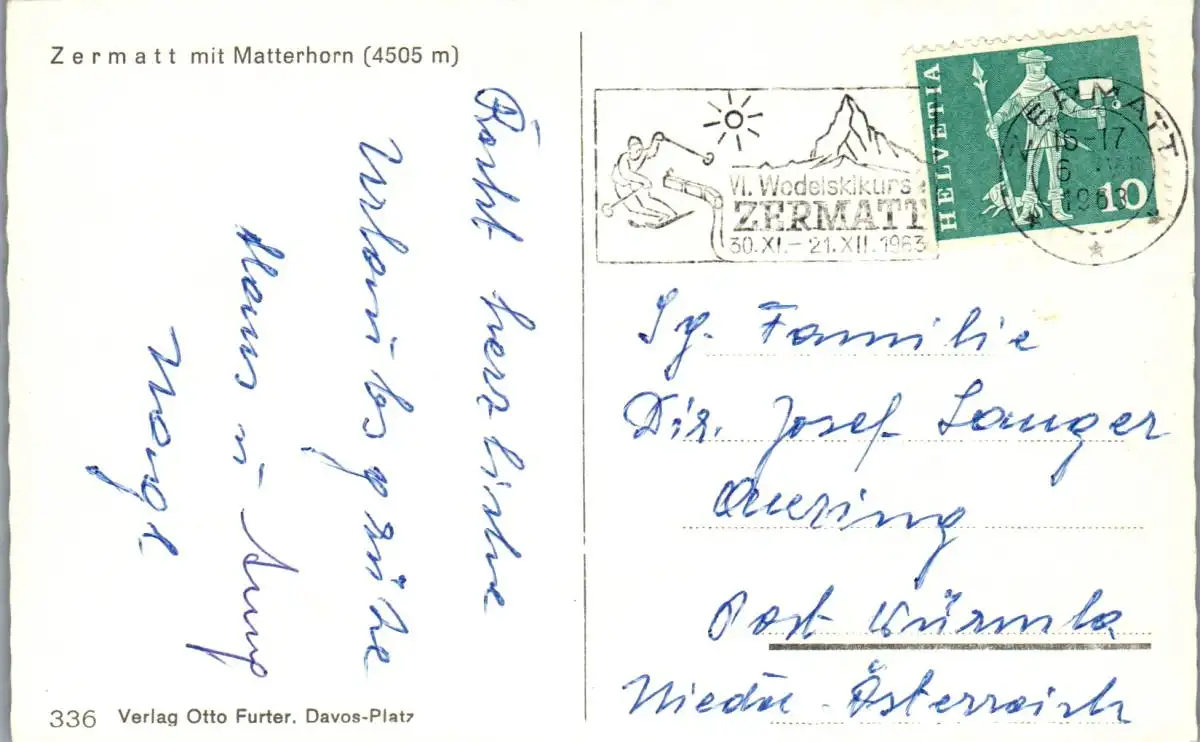 Zermatt mit Matterhorn (4505 m)
Recht herzliche
Urlaubsgrüße
Hans u.
336 Verlag Otto Furter, Davos-Platz
VI. Wedelskikurse
ZERMATT
30. XI. – 21. XII. 1963
HELVETIA
10
ZERMATT
16-17
6
1963
Sg. Familie
Dir. Josef Langer
Post Würmla
Nieder-Österreich